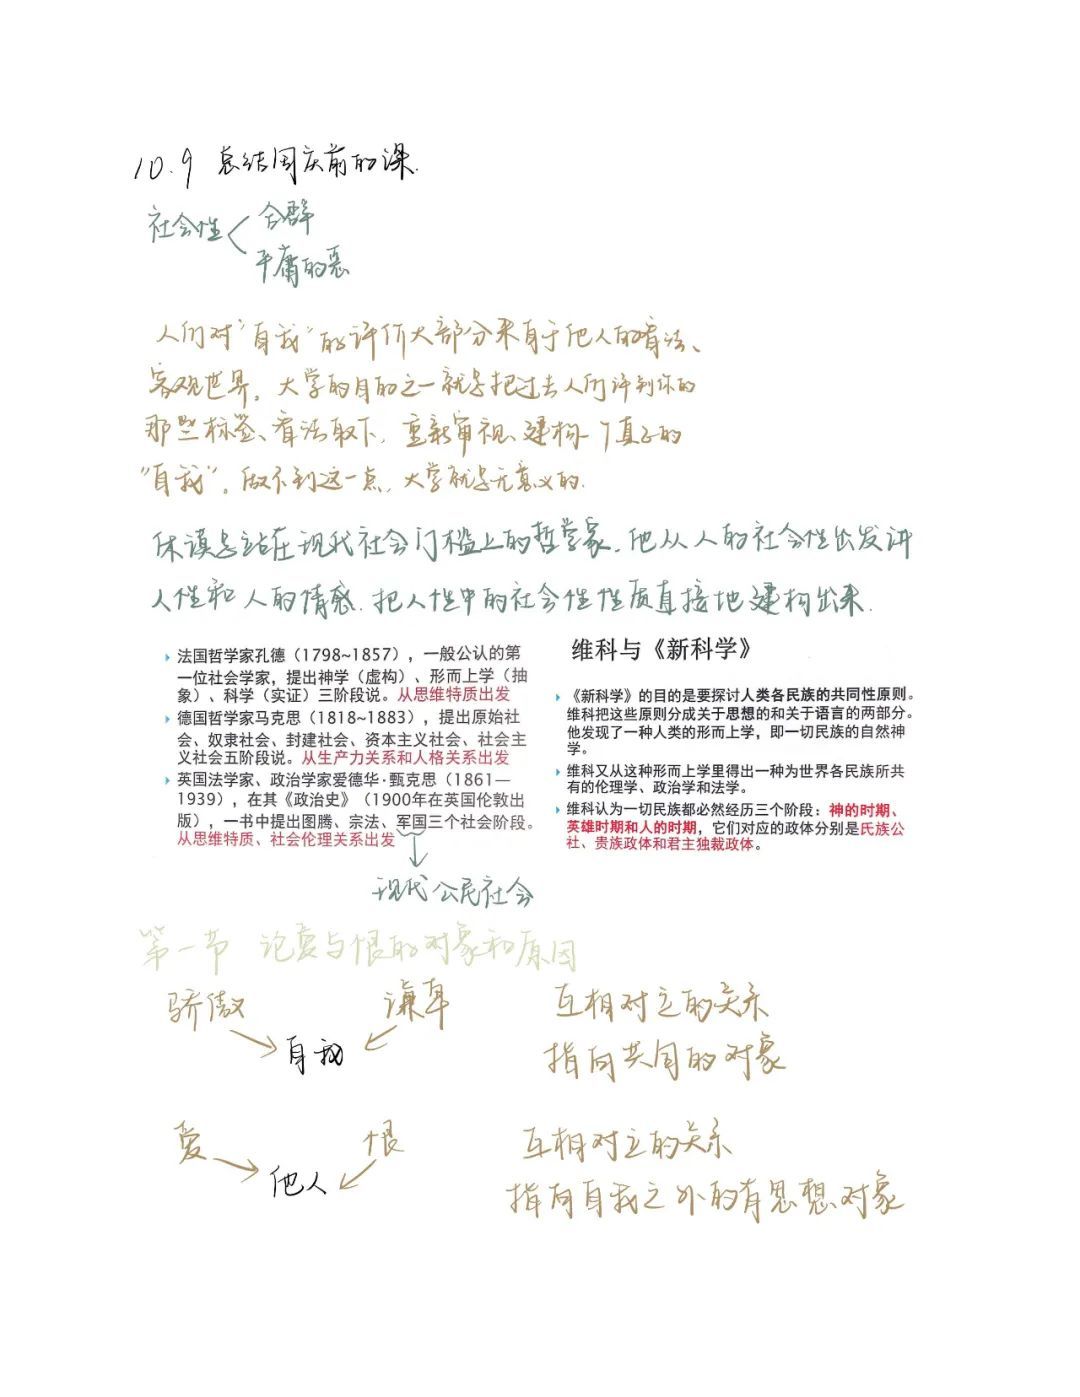 10.9 总结国庆前的课.
社会性
合群
平庸的恶
人们对“自我”的评价大部分来自于他人的看法、
客观世界。大学的目的之一就是把过去人们评判你的
那些标签、看法取下,重新审视、建构一个真正的
“自我”。做不到这一点,大学就是无意义的.
休谟是站在现代社会门槛上的哲学家.他从人的社会性出发讲
人性和人的情感.把人性中的社会性性质直接地建构出来.
法国哲学家孔德(1798~1857),一般公认的第
一位社会学家,提出神学(虚构)、形而上学(抽
象)、科学(实证)三阶段说。从思维特质出发
德国哲学家马克思(1818~1883),提出原始社
会、奴隶社会、封建社会、资本主义社会、社会主
义社会五阶段说。从生产力关系和人格关系出发
英国法学家、政治学家爱德华·甄克思(1861—
1939),在其《政治史》(1900年在英国伦敦出
版),一书中提出图腾、宗法、军国三个社会阶段。
从思维特质、社会伦理关系出发
现代公民社会
维科与《新科学》
《新科学》的目的是要探讨人类各民族的共同性原则。
维科把这些原则分成关于思想的和关于语言的两部分。
他发现了一种人类的形而上学,即一切民族的自然神
学。
维科又从这种形而上学里得出一种为世界各民族所共
有的伦理学、政治学和法学。
维科认为一切民族都必然经历三个阶段:神的时期、
英雄时期和人的时期,它们对应的政体分别是氏族公
社、贵族政体和君主独裁政体。
第一节 论爱与恨的对象和原因
骄傲 谦卑 互相对立的关系
自我 指向共同的对象
爱 恨 互相对立的关系
他人 指向自我之外的有思想对象